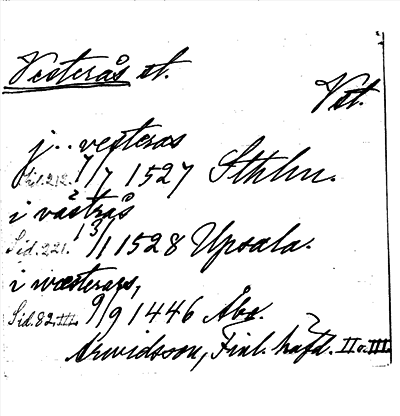 Vesterås st.
Vst.
j.. vesteras
Sid. 212. 7/7 1527 Sthlm.
i västrås
Sid. 221. 13/1 1528 Upsala.
i wæsterars,
Sid. 82. III. 9/9 1446 Åbo.
Arwidsson, Finl. häfd. II o. III.